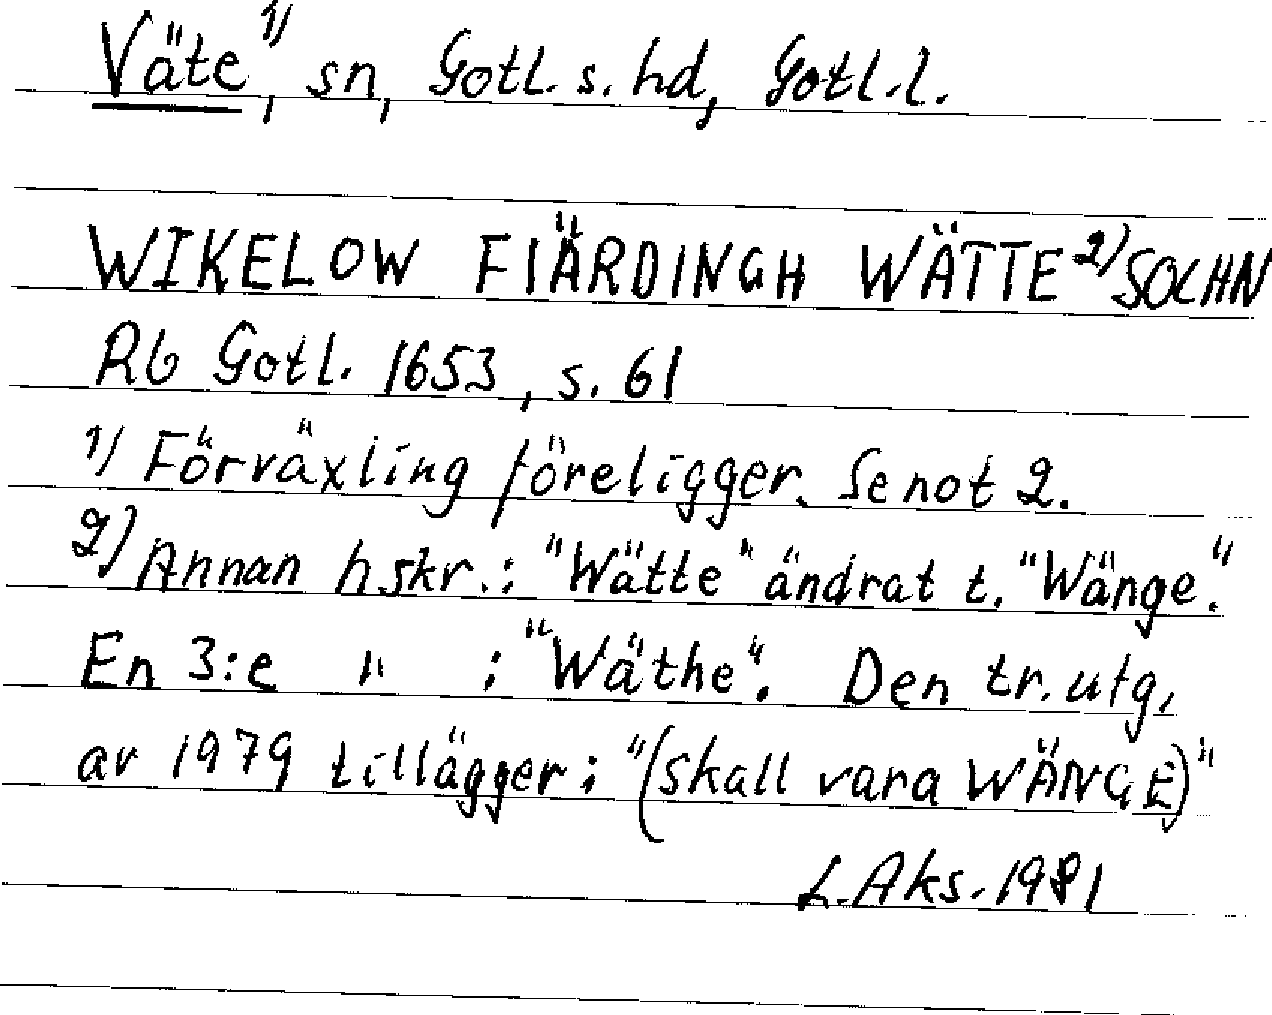 Väte 1), sn, Gotl. s. hd, Gotl. l.
WIKELOW FIÄRDINGH WÄTTE 2) SOCHN
Rb Gotl. 1653, s. 61
1) Förväxling föreligger. Se not 2.
2) Annan hskr.: "Wätte" ändrat t. "Wänge".
En 3:e " : "Wäthe". Den tr. utg.
av 1979 tillägger: "(skall vara WÄNGE)"
L. Aks. 1981